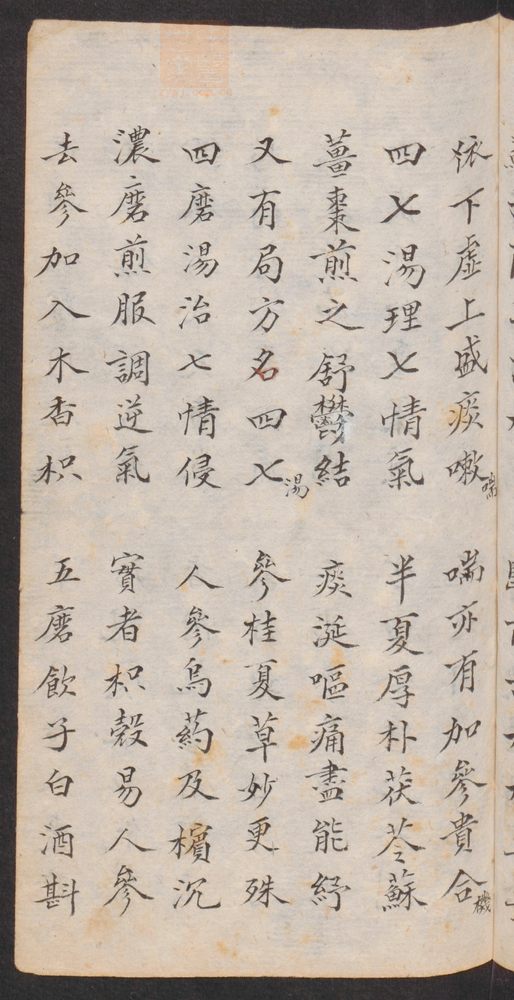 痰下虛上盛痰嗽喘 喘亦有加參貴合機
四七湯理七情氣 半夏厚朴茯苓蘇
薑棗煎之舒鬱結 痰涎嘔痛盡能紓
又有局方名四七湯 參桂夏草妙更殊
四磨湯治七情侵 人參烏葯及檳沉
濃磨煎服調逆氣 實者枳殼易人參
去參加入木香枳 五磨飲子白酒斟